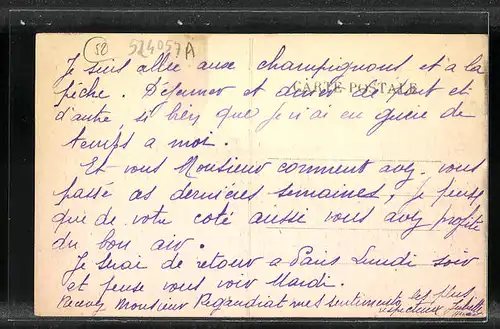 50
524057A
CARTE POSTALE
Je suis allée aux champignons et a la
pêche. Déjeuner et diner de part et
d'autre si bien que je n'ai eu guère de
temps a moi.
Et vous Monsieur comment avez vous
passé ces dernières semaines, je pense
que de votre coté aussi vous avez profité
du bon air.
Je serai de retour a Paris Lundi soir
et pense vous voir Mardi.
Recevez Monsieur mes sentiments les plus
respectueux